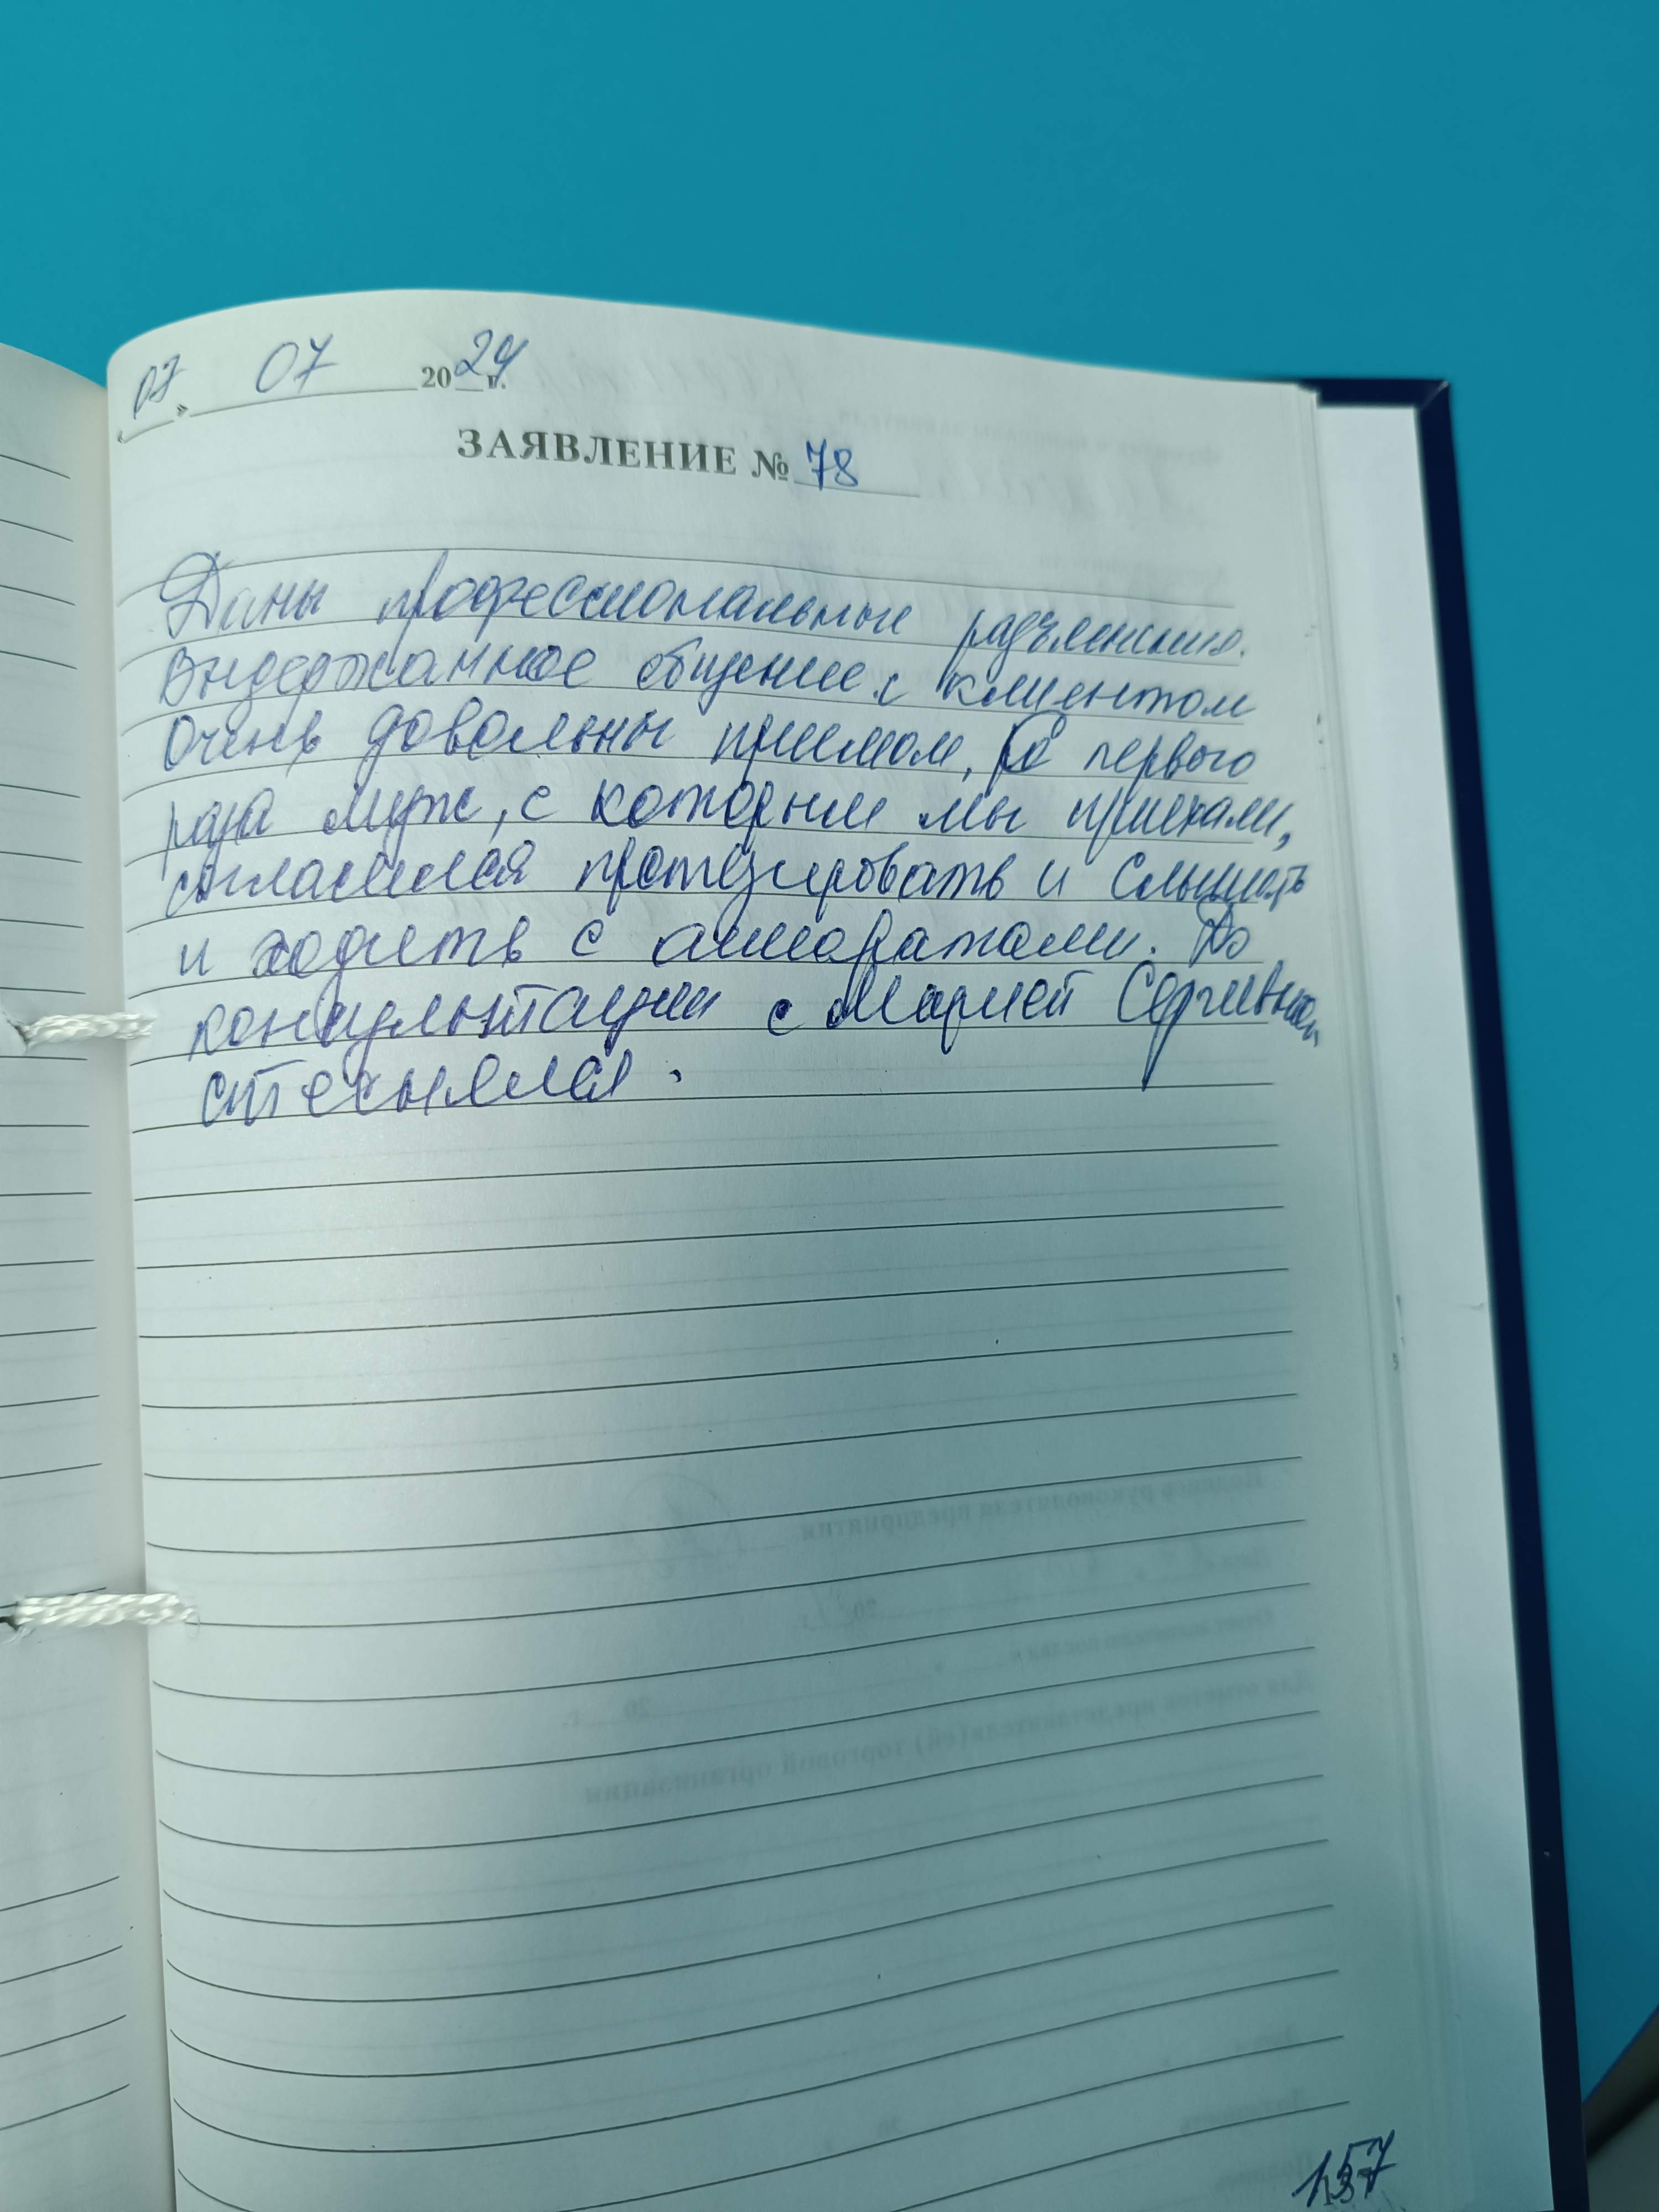 « 07 » 07 2024 г.
ЗАЯВЛЕНИЕ № 78
Даны профессиональные разъяснения.
Выдержанное общение с клиентом
Очень довольны приемом, С первого
раза муж, с которым мы приехали,
согласился протезировать и слышать
и ходить с аппаратами. До
консультации с Марией Сергивной
стеснялся.
157